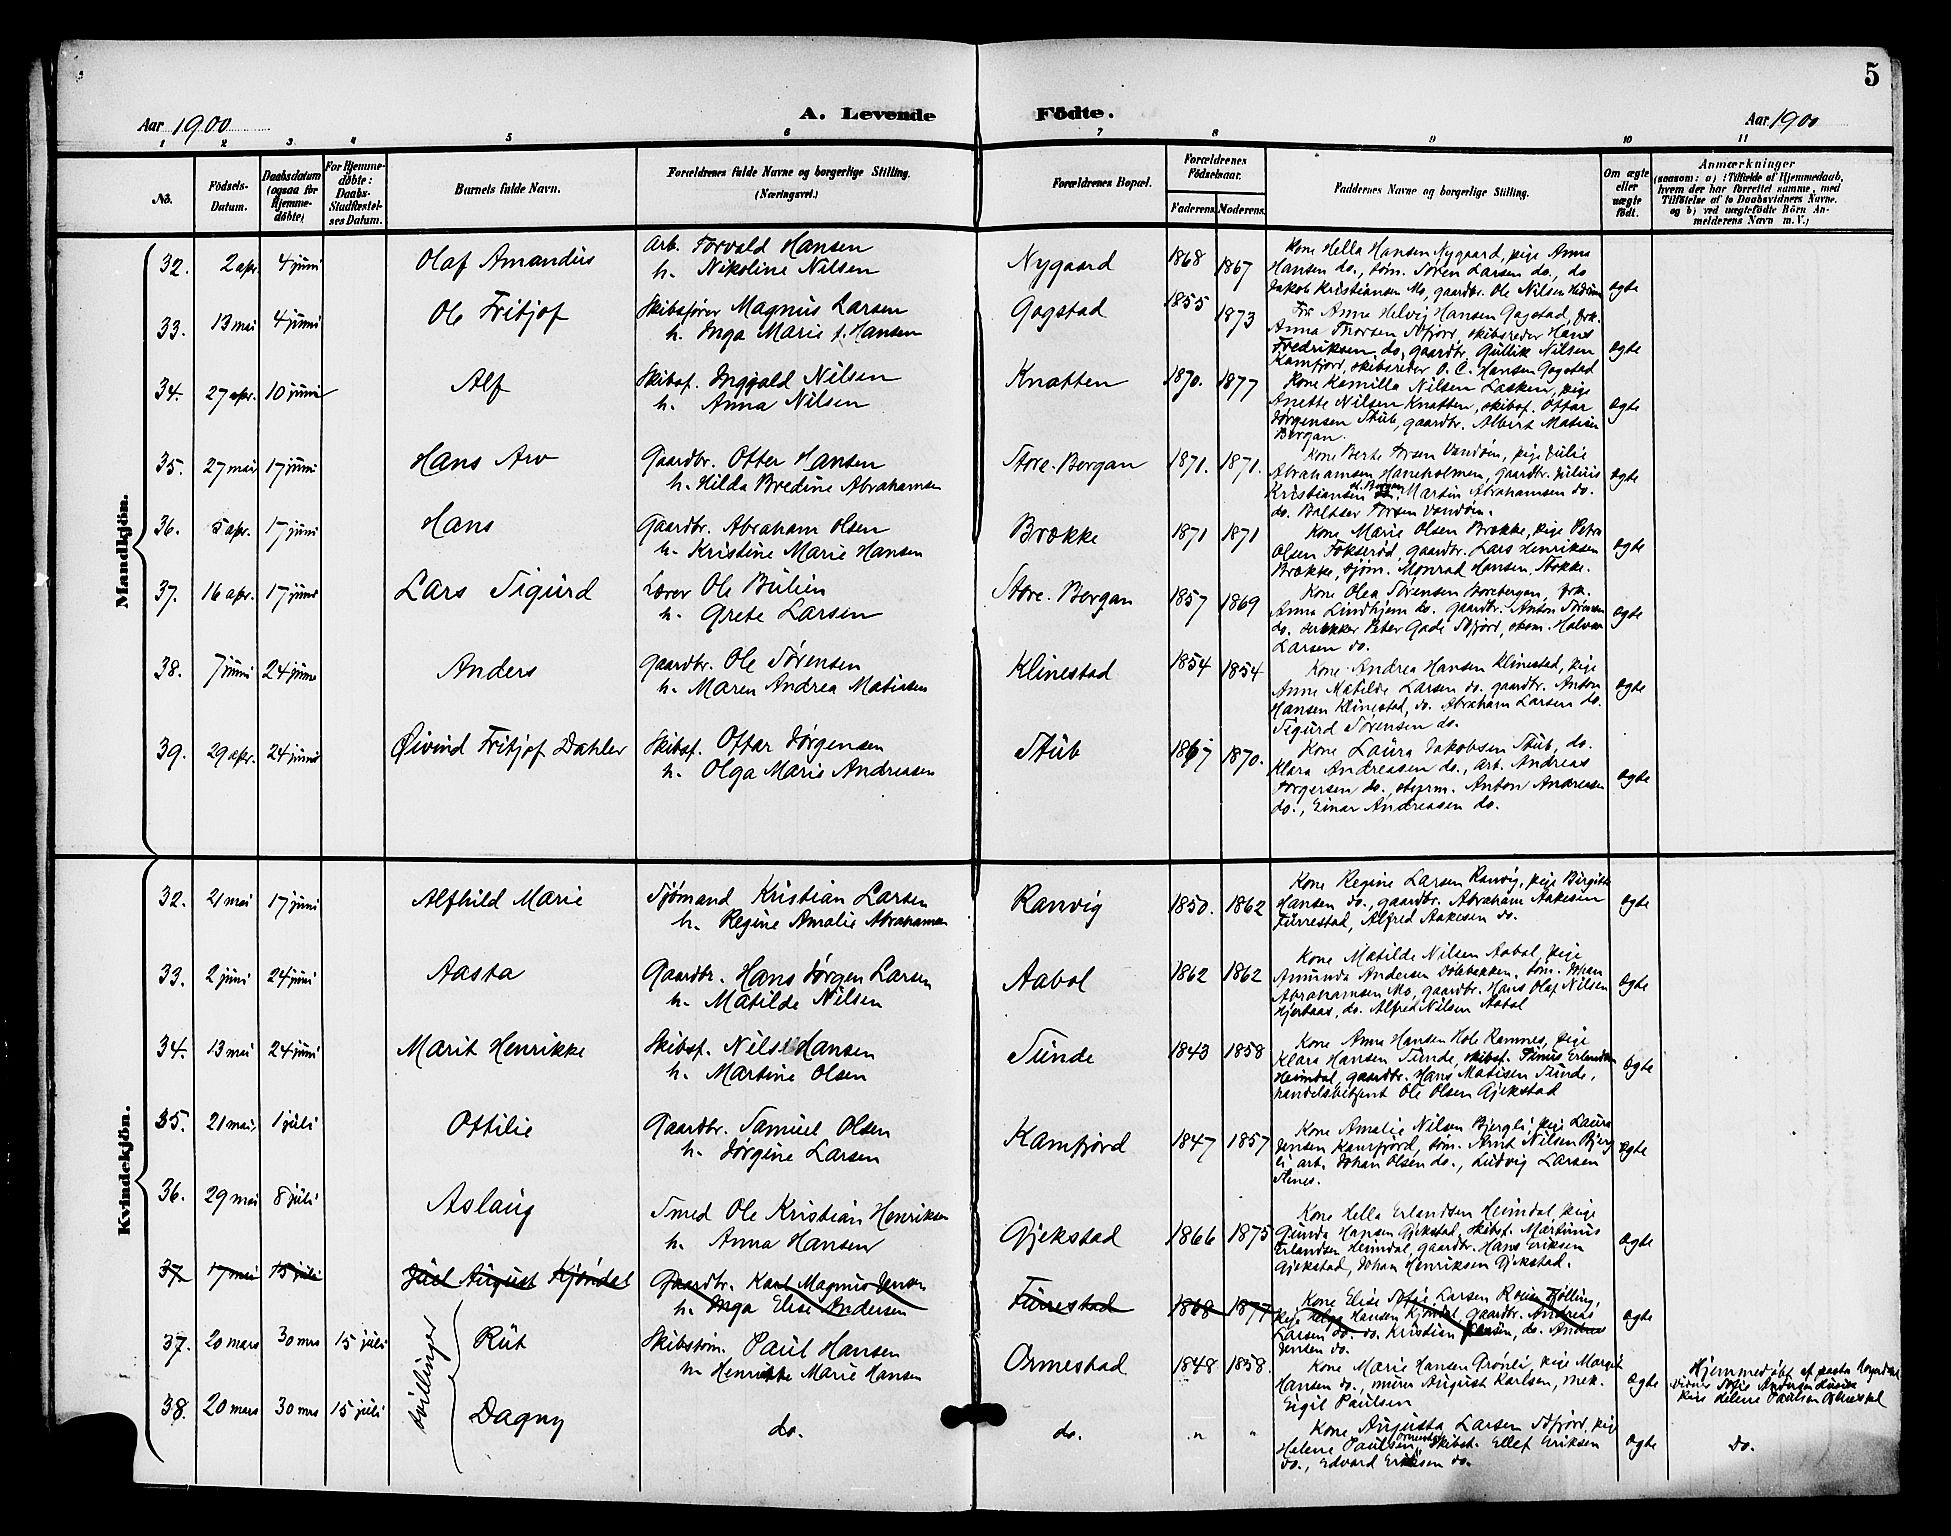 5
Aar 1900
A. Levende Fødte.
Aar 1900
1 2 3 4 5 6 7 8 9 10 11
No.
Fødsels-Datum.
Daabsdatum (ogsaa for Hjemme-døbte)
For Hjemme-døbte: Daabs-Stadfæstel-ses Datum.
Barnets fulde Navn.
Forældrenes fulde Navne og borgerlige Stilling. (Næringsvei.)
Forældrenes Bopæl.
Forældrenes Fødselsaar.
Faderens. Moderens.
Faddernes Navne og borgerlige Stilling.
Om ægte eller uægte født.
Anmærkninger
(saasom: a) i Tilfælde af Hjemmedaab, hvem der har forrettet samme, med Tilføielse af to Daabsvidners Navne. og b) ved uægtefødte Børn Anmelderens Navn m. V.)
Mandkjön.
32. 2 apr. 4 juni Olaf Amandus
Arb. Torvald Hansen
h. Nikoline Nilsen
Nygaard 1868 1867
Kone Hella Hansen Nygaard, pige Anna
Hansen do., søm. Søren Larsen do., do
Jakob Kristiansen Mo, gaardbr. Ole Nilsen
ægte
33. 13 mai 4 juni Ole Fritjof
Skibsfører Magnus Larsen
h. Inga Marie f. Hansen
Gogstad 1855 1873
Fr. Anne Helvig Hansen Gogstad, frk.
Anna Thorsen Sfjord, skibsreder Hans
Fredriksen do, gaardbr. Gullik Nilsen
Kamfjord, skibsreder O. C. Hansen Gogstad
ægte
34. 27 apr. 10 juni Alf
Skibsf. Ingvald Nilsen
h. Anna Nilsen
Knatten 1870. 1877
Kone Kamilla Nilsen Lasken, pige
Anette Nilsen Knatten, skibsf. Ottar
Jørgensen Stub, gaardbr. Albert Matisen
Bergan.
ægte
35. 27 mai 17 juni Hans Arv
Gaardbr. Otter Hansen
h. Hilda Bredine Abrahamsen
Store. Bergan 1871. 1871.
Kone Berte Torsen Vandøin, pige Julie
Abrahamsen Haneholmen, gaardbr. Julius
Kristiansen st. Bergan, Martin Abrahamsen do.
do. Baltser Torsen Vandøin.
ægte
36. 5 apr. 17 juni Hans
Gaardbr. Abraham Olsen
h. Kristine Marie Hansen
Brække 1871 1871
Kone Marie Olsen Brække, pige Petra
Olsen Fokserød, gaardbr. Lars Henriksen
Brække, sjøm. Monrad Hansen, Stokke.
ægte
37. 16 apr. 17 juni Lars Sigurd
Lærer Ole Bulien
h. Grete Larsen
Store. Bergan 1857 1869
Kone Olea Sørensen Storebergan, frk.
Anna Lindhjem do. gaardbr. Anton Sørensen
do. Peter Gade Sfjord, skom. Halvor
Larsen do.
ægte
38. 7 juni 24 juni Anders
Gaardbr. Ole Sørensen
h. Maren Andrea Matisen
Klinestad 1854 1854
Kone Andrea Hansen Klinestad, pige
Anne Matilde Larsen do, gaardbr. Anton
Hansen Klinestad, do. Abraham Larsen do.
Sigurd Sørensen do.
ægte
39. 29 apr. 24 juni Øivind Fritjof Dahler
Skibsf. Ottar Jørgensen
h. Olga Marie Andreasen
Stub 1867 1870.
Kone Laura Jakobsen Stub, do.
Klara Andreasen do., arb. Andreas
Jørgensen do., styrm. Anton Andreasen
do., Einar Andreasen do.
ægte
Kvindekjön.
32. 21 mai 17 juni Alfhild Marie
Sjømand Kristian Larsen
h. Regine Amalie Abrahamsen
Ranvig 1850. 1862
Kone Regine Larsen Ranvig, pige Birgitte
Hansen do., gaardbr. Abraham Aakesen
Furrestad, Alfred Aakesen do.
ægte
33. 2 juni 24 juni Aasta
Gaardbr. Hans Jørgen Larsen
h. Matilde Nilsen
Aabol 1862 1862
Kone Matilde Nilsen Aabol, pige
Amunda Andersen Dølebakken, søm. Johan
Abrahamsen Mo, gaardbr. Hans Olaf Nilsen
Hjertaas, do. Alfred Nilsen Aabol
ægte
34. 13 mai 24 juni Marit Henrikke
Skibsf. Nils Hansen
h. Martine Olsen
Sunde 1843 1858
Kone Anna Hansen Hole Ramnes, pige
Klara Hansen Sunde, skibsf. Tinus Erlandsen
Heimdal, gaardbr. Hans Matisen Sunde,
handelsbetjent Ole Olsen Gjekstad
ægte
35. 21 mai, 1 juli Ottilie
Gaardbr. Samuel Olsen
h. Jørgine Larsen
Kamfjord 1847 1857
Kone Amalie Nilsen Bjergli, pige Laura
Jensen Kamfjord, søm. Arnt Nilsen Bjerg
li, arb. Johan Olsen do., Ludvig Larsen
Stenes.
ægte
36. 29 mai 8 juli Aslaug
Smed Ole Kristian Henriksen
h. Anna Hansen
Gjekstad 1866 1875
Kone Hella Erlandsen Heimdal, pige
Gunda Hansen Gjekstad, skibsf. Martinius
Erlandsen Heimdal, gaardbr. Hans Eriksen
Gjekstad, Johan Henriksen Gjekstad.
ægte
37 17 mai 15 juli Juel August Kjøndal
Gaardbr. Karl Magnus Jensen
h. Inga Elise Andersen
Furrestad 1868 1877
Kone Elise Sofie Larsen Tjølling,
pige Hansen Kjøndal, gaardbr. Andreas
Larsen do. do. Kristian Hansen, do. Andreas
Jensen do.
ægte
tvillinger
37. 20 mars 30 mrs 15 juli Rut
Skibstøm. Paul Hansen
h. Henriette Marie Hansen
Ormestad 1848 1858.
Kone Marie Hansen Grønli, pige Margit
Hansen do., murer August Karlsen, mek.
Eigil Paulsen
ægte
Hjemmedøbt af pastor
vidner Sofie Andersen
pige Helene Paulsen Ormestad
38. 20 mars 30 mrs 15 juli Dagny
do. do. " "
Kone Augusta Larsen Sfjord, pige
Helene Paulsen Ormestad, skibst. Ellef Eriksen
do., Edvard Eriksen do.
ægte
do.